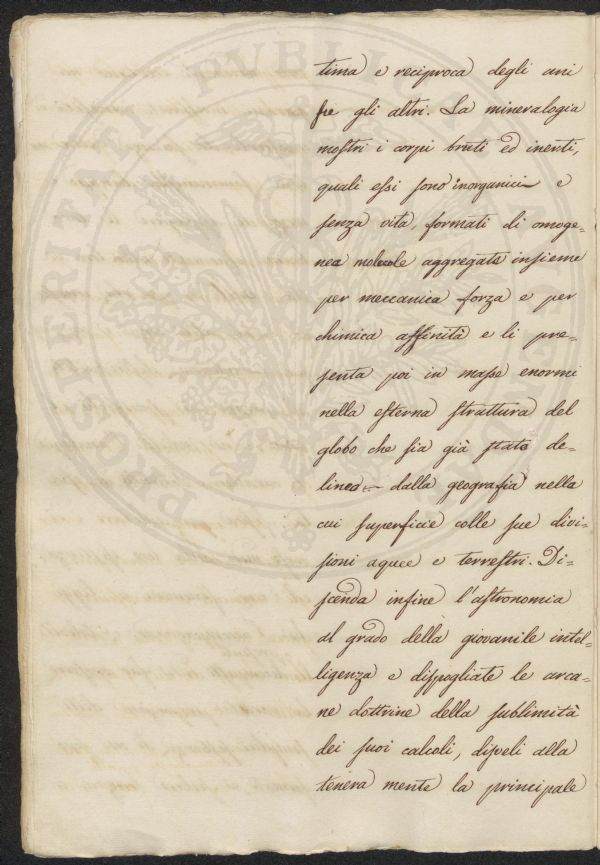 tima e reciproca degli uni
fre gli altri. La mineralogia
mostri i corpi bruti ed inerti,
quali essi sono inorganici e
senza vita, formati di omoge=
nee molecole aggregate insieme
per meccanica forza e per
chimica affinità e li pre=
senta poi in masse enormi
nella esterna struttura del
globo che sia già stato de=
linea dalla geografia nella
cui superficie colle sue divi=
sioni aquee e terrestri. Di=
scenda infine l'astronomia
al grado della giovanile intel=
ligenza e dispogliate le arca=
ne dottrine della sublimità
dei suoi calcoli, disveli alla
tenera mente la principale
PROSPERITATI PVBLICAE